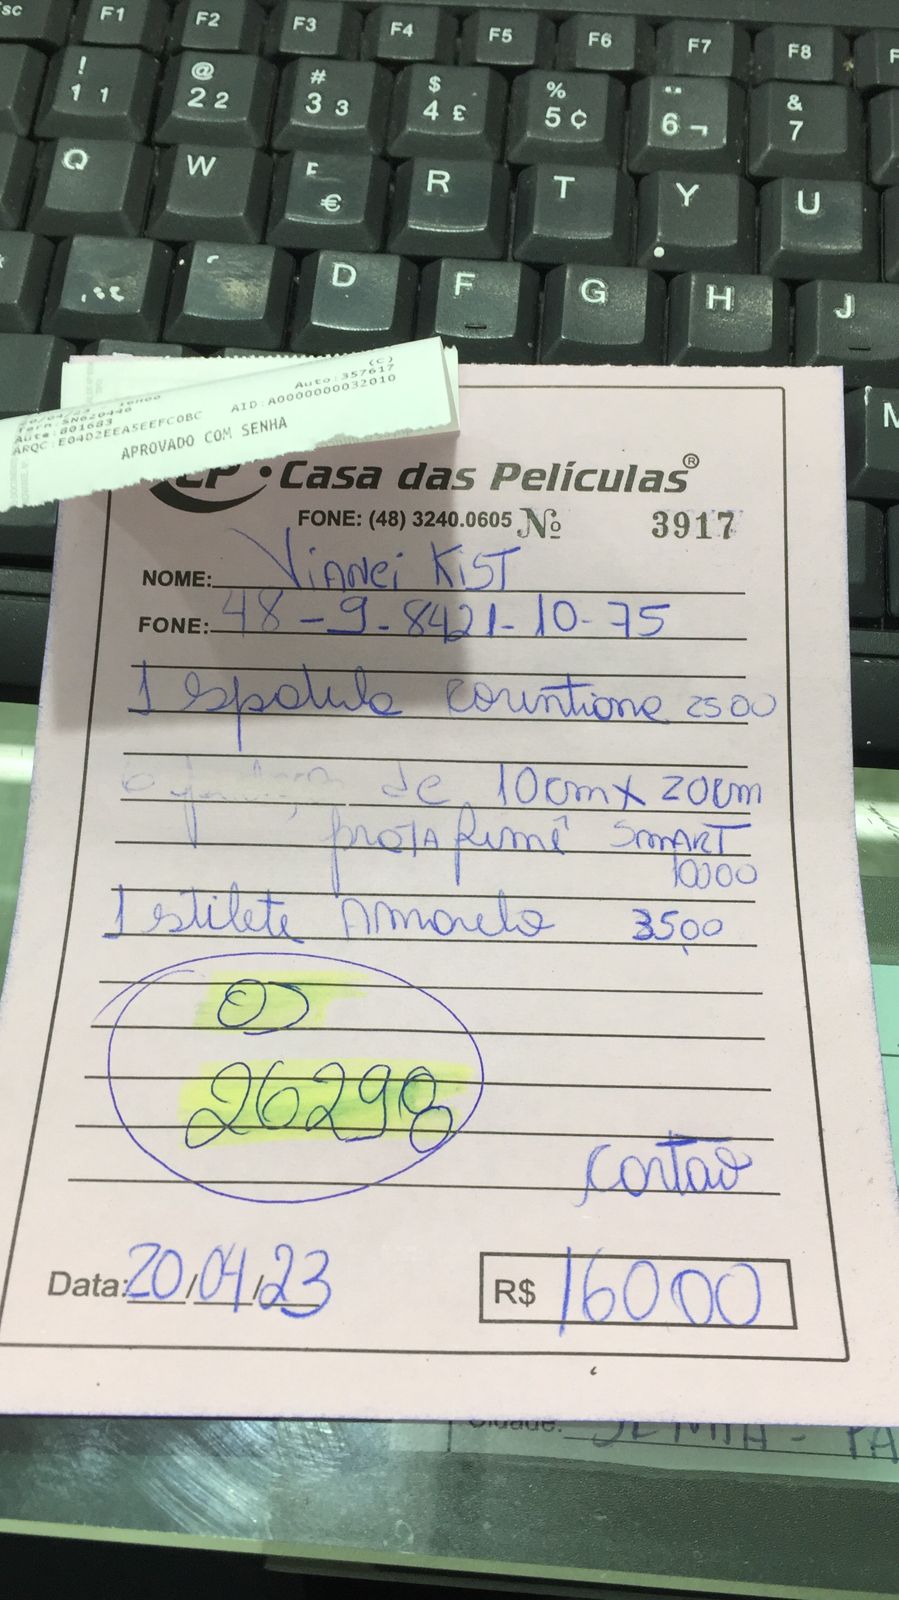 F1 F2 F3 F4 F5 F6 F7 F8
! 1 1 @ 2 2 # 3 3 $ 4 £ % 5 ¢ 6 ¬ & 7
Q W € R T Y U
D F G H J
M
(C)
Auto:357617
20/04/23
Term:SN620446
Aute:801683 AID:A0000000032010
ARQC:E04D2EEA5EEFC0BC
APROVADO COM SENHA
CP • Casa das Películas®
FONE: (48) 3240.0605 Nº 3917
NOME: Vianei Kist
FONE: 48-9-8421-10-75
1 espatula corintiana 2500
de 10cm x 20cm
preta fumê SMART
10000
1 estilete Amarelo 3500
OS
26290
cartão
Data: 20/04/23 R$ 16000
Cidade: